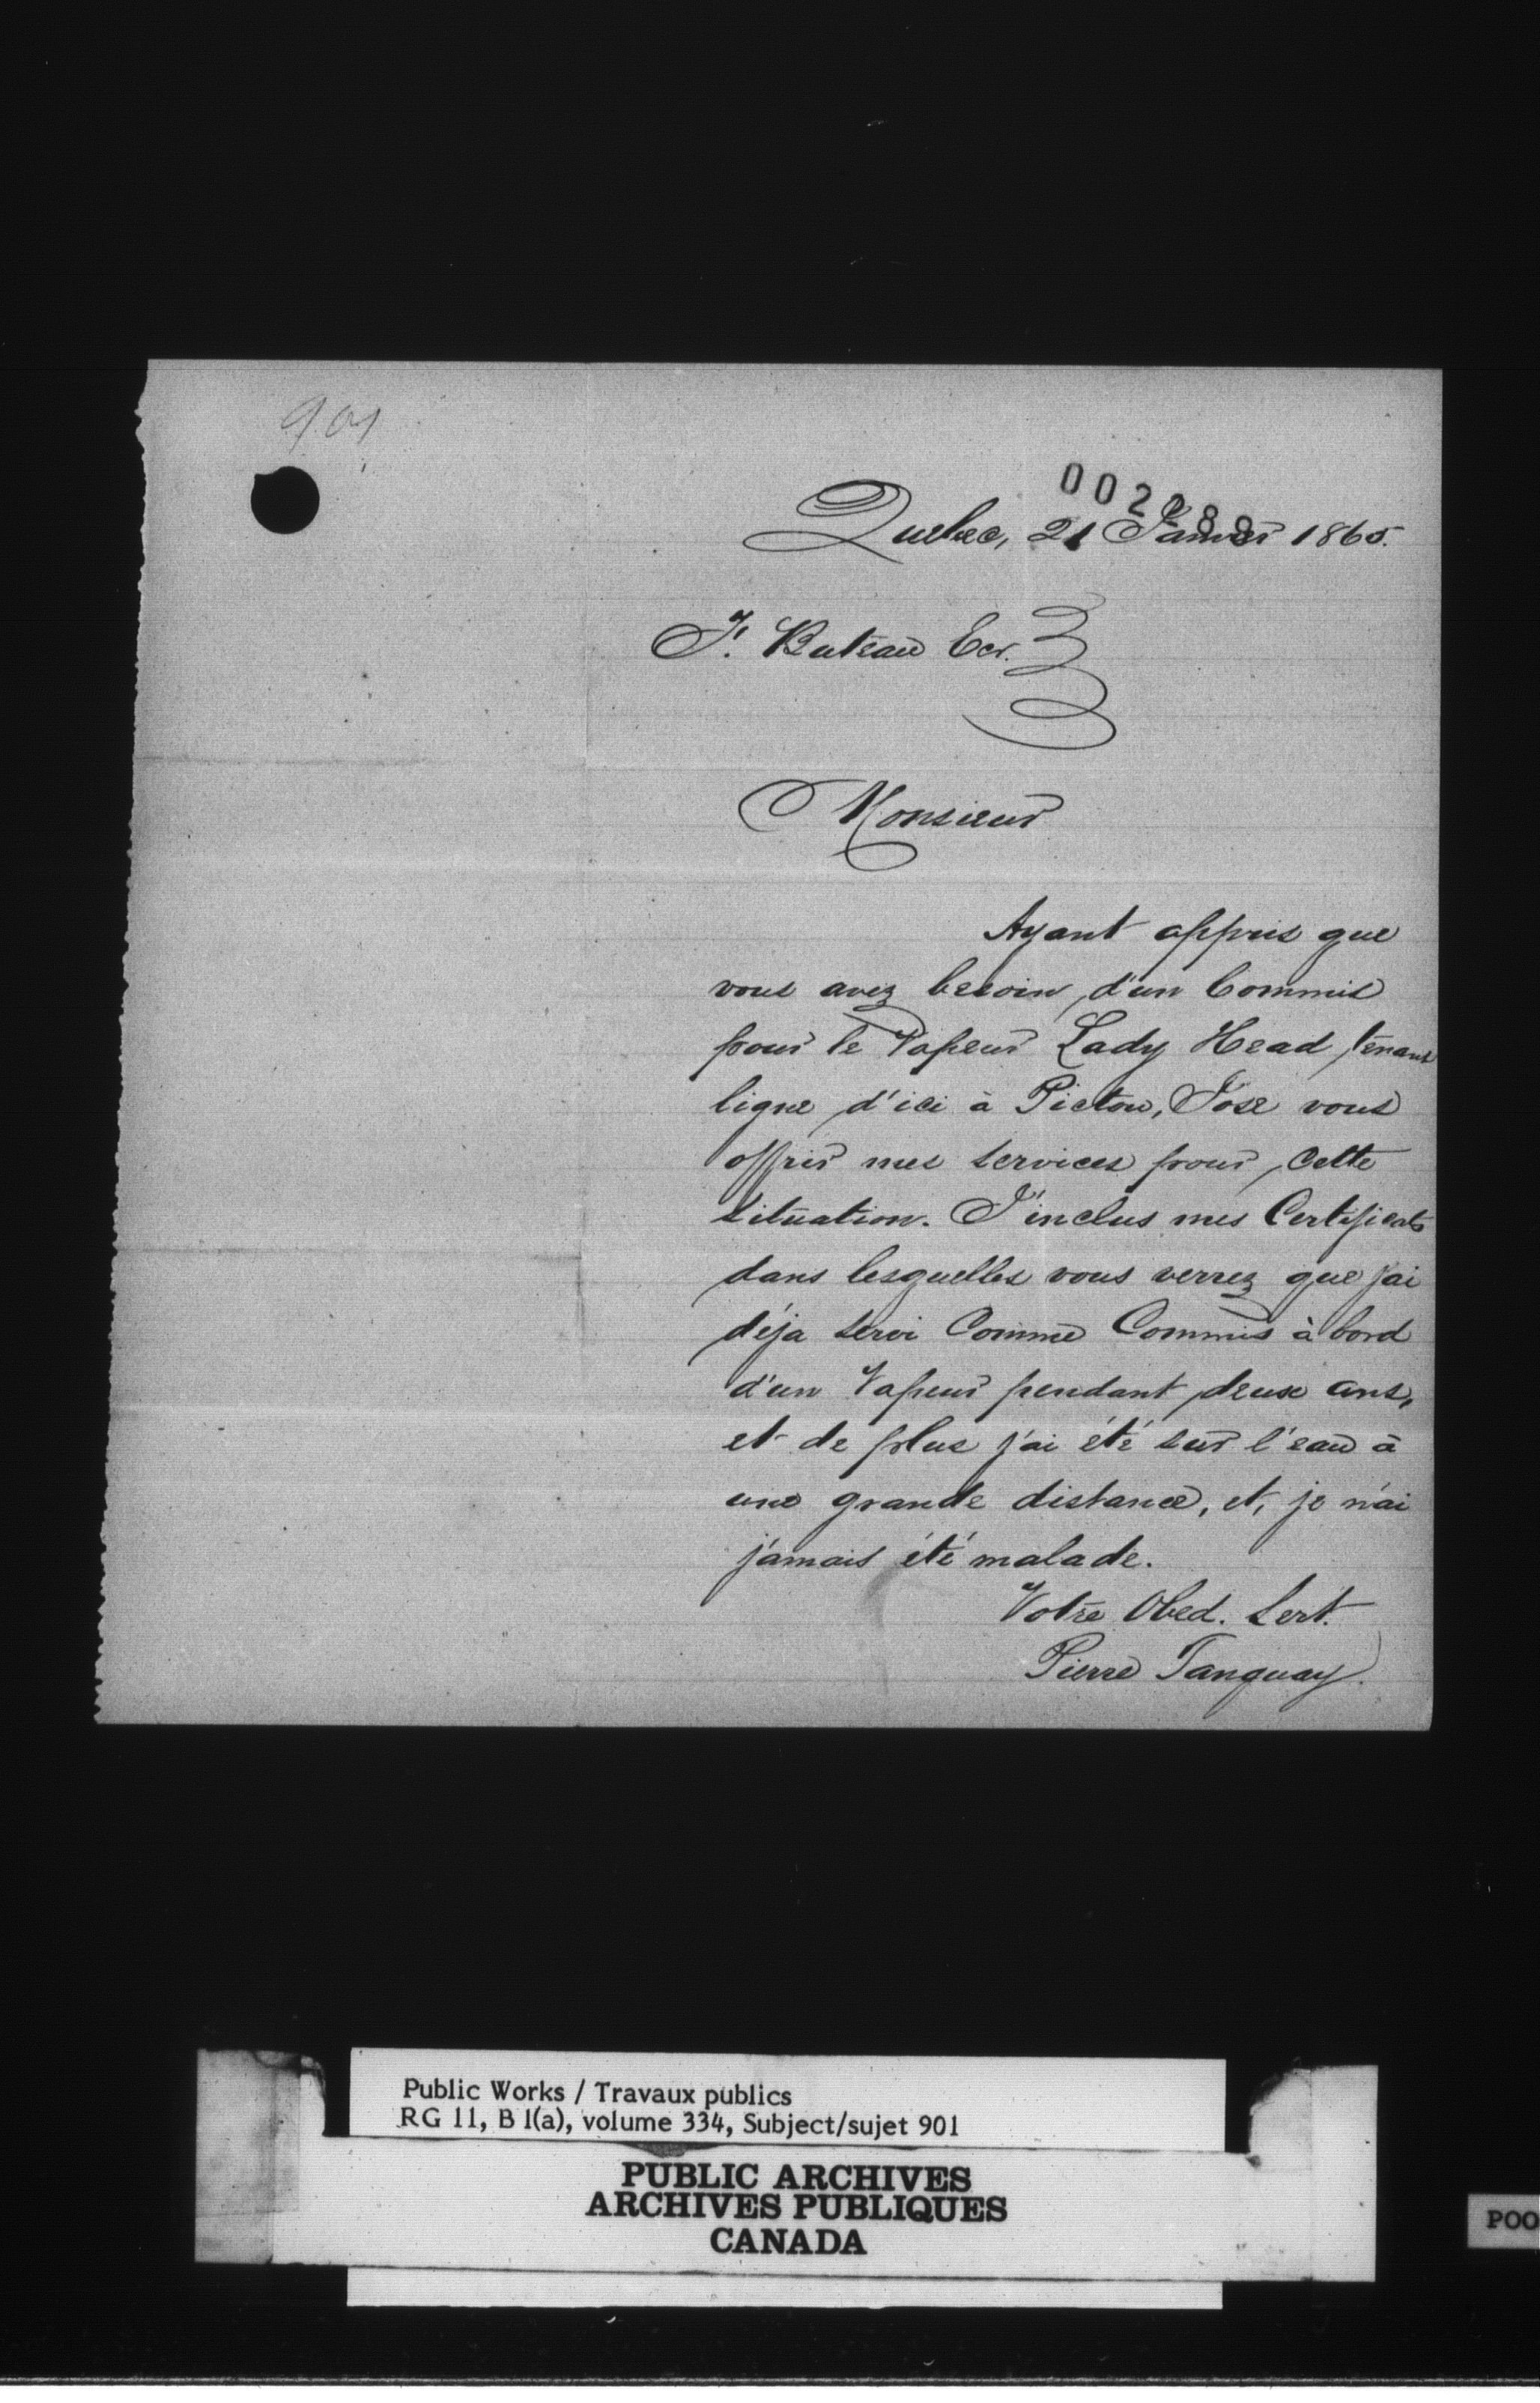 901
002288
Quebec, 21 Janvier 1865.
F. Buteau Ecr.
Monsieur
Ayant appris que
vous avez besoin d'un Commis
pour le Vapeur Lady Head tenant
ligne d'ici à Pictou, J'ose vous
offrir mes services pour cette
situation. J'inclus mes Certificats
dans lesquelles vous verrez que j'ai
déja servi Comme Commis à bord
d'un Vapeur pendant deux ans,
et de plus j'ai été sur l'eau à
une grande distance, et, je n'ai
jamais été malade.
Votre Obed. Sert.
Pierre Tanguay.
Public Works / Travaux publics
RG 11, B 1(a), volume 334, Subject/sujet 901
PUBLIC ARCHIVES
ARCHIVES PUBLIQUES
CANADA
POO